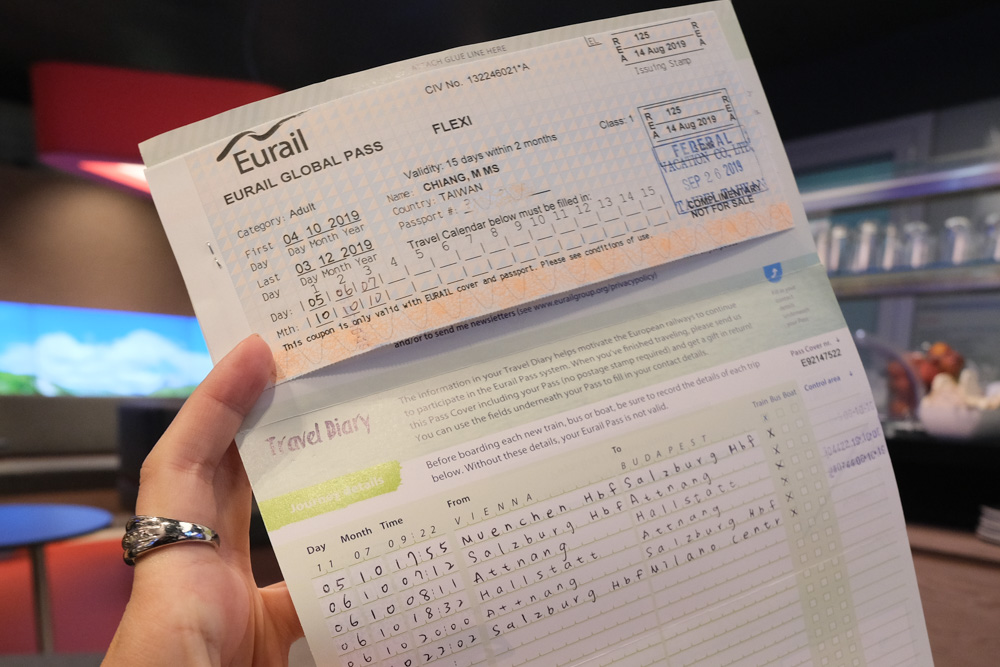 ATTACH GLUE LINE HERE
CIV No. 132246021*A
EL
R E A 125 R E A
14 Aug 2019
Issuing Stamp
Eurail
EURAIL GLOBAL PASS
FLEXI
Class: 1
R E A 125 R E A
14 Aug 2019
FEDERAL
VACATION CO., LTD.
SEP 26 2019
COMPLIMENTARY
NOT FOR SALE
Validity: 15 days within 2 months
Category: Adult
Name: CHIANG, M MS
Country: TAIWAN
Passport #:
First Day 04 10 2019
Day Month Year
Last Day 03 12 2019
Day Month Year
Travel Calendar below must be filled in:
1 2 3 4 5 6 7 8 9 10 11 12 13 14 15
Day: 05 06 07
Mth: 10 10 10
This coupon is only valid with EURAIL cover and passport. Please see conditions of use.
and/or to send me newsletters (see www.eurailgroup.org/privacypolicy)
Travel Diary
The information in your Travel Diary helps motivate the European railways to continue
to participate in the Eurail Pass system. When you've finished traveling, please send us
this Pass Cover including your Pass (no postage stamp required) and get a gift in return!
You can use the fields underneath your Pass to fill in your contact details.
Pass Cover nr.
E92147522
Journey details
Before boarding each new train, bus or boat, be sure to record the details of each trip
below. Without these details, your Eurail Pass is not valid.
Day Month Time From To Train Bus Boat Control area
11 07 09:22 VIENNA BUDAPEST X
05 10 17:55 Muenchen Hbf Salzburg Hbf X
06 10 07:12 Salzburg Hbf Attnang X
06 10 08:11 Attnang Hallstatt X
06 10 18:32 Hallstatt Attnang X
06 10 20:00 Attnang Salzburg Hbf X
06 10 23:02 Salzburg Hbf Milano Centr X